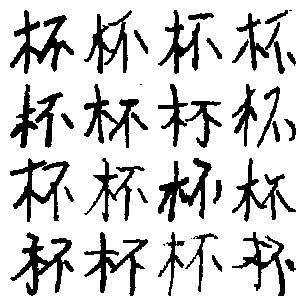 杯杯杯杯
杯杯杯杯
杯杯杯杯
杯杯杯杯